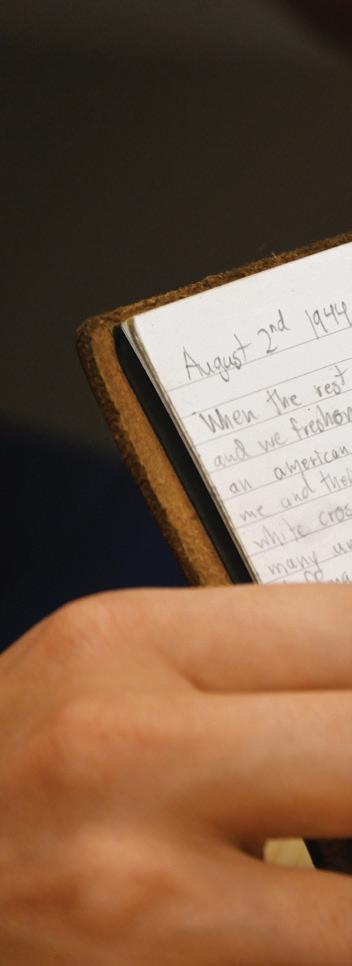 August 2nd 1944
When the rest
and we freshen
an american
me and the
white cros
many un